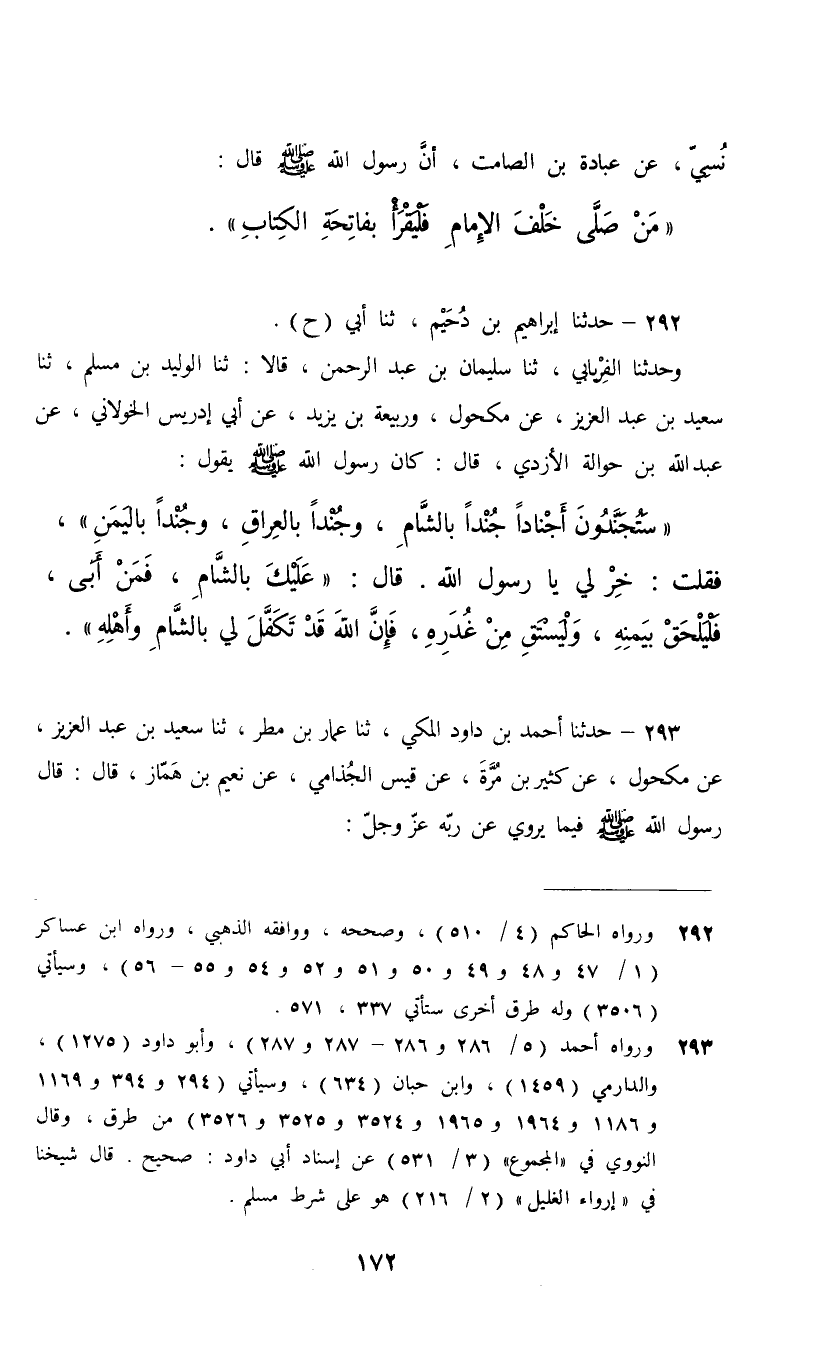 نُسِيّ ، عن عبادة بن الصامت ، أنَّ رسول الله ﷺ قال :
« مَنْ صَلَّى خَلْفَ الإِمامِ فَلْيَقْرَأْ بفاتِحَةِ الكِتابِ » .
٢٩٢ – حدثنا إبراهيم بن دُحَيْم ، ثنا أبي (ح) .
وحدثنا الفِرْيابي ، ثنا سليمان بن عبد الرحمن ، قالا : ثنا الوليد بن مسلم ، ثنا
سعيد بن عبد العزيز ، عن مكحول ، وربيعة بن يزيد ، عن أبي إدريس الخولاني ، عن
عبدالله بن حوالة الأزدي ، قال : كان رسول الله ﷺ يقول :
« سَتُجَنَّدُونَ أَجْناداً جُنْداً بالشَّامِ ، وجُنْداً بالعِراقِ ، وجُنْداً باليَمَنِ » ،
فقلت : خِرْ لي يا رسول الله . قال : « عَلَيْكَ بالشَّامِ ، فَمَنْ أَبَى ،
فَلْيَلْحَقْ بيَمنِهِ ، وَلْيَسْتَقِ مِنْ غُدَرِهِ ، فَإِنَّ اللهَ قَدْ تَكَفَّلَ لي بالشَّامِ وأَهْلِهِ » .
٢٩٣ – حدثنا أحمد بن داود المكي ، ثنا عمار بن مطر ، ثنا سعيد بن عبد العزيز ،
عن مكحول ، عن كثير بن مُرَّةَ ، عن قيس الجُذامي ، عن نعيم بن هَمّاز ، قال : قال
رسول الله ﷺ فيما يروي عن ربّه عزّ وجلّ :
٢٩٢ ورواه الحاكم (٤ / ٥١٠) ، وصححه ، ووافقه الذهبي ، ورواه ابن عساكر
(١ / ٤٧ و ٤٨ و ٤٩ و ٥٠ و ٥١ و ٥٢ و ٥٤ و ٥٥ – ٥٦) ، وسيأتي
(٣٥٠٦) وله طرق أخرى ستأتي ٣٣٧ ، ٥٧١ .
٢٩٣ ورواه أحمد (٥ / ٢٨٦ و ٢٨٦ – ٢٨٧ و ٢٨٧) ، وأبو داود (١٢٧٥) ،
والدارمي (١٤٥٩) ، وابن حبان (٦٣٤) ، وسيأتي (٢٩٤ و ٣٩٤ و ١١٦٩
و ١١٨٦ و ١٩٦٤ و ١٩٦٥ و ٣٥٢٤ و ٣٥٢٥ و ٣٥٢٦) من طرق ، وقال
النووي في «المجموع» (٣ / ٥٣١) عن إسناد أبي داود : صحيح . قال شيخنا
في « إرواء الغليل » (٢ / ٢١٦) هو على شرط مسلم .
١٧٢